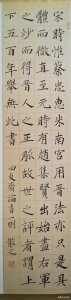 宋時惟蔡忠惠米南宮用晉法亦只是具
體而微直至元時有趙集賢出始盡右軍
之妙而得晉人之正脈故世之評者謂上
下五百年舉無此書